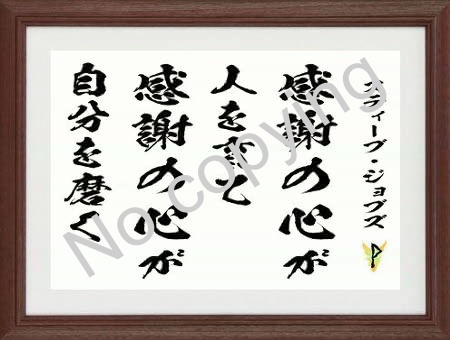 スティーブ・ジョブズ
感謝の心が
人を育て
感謝の心が
自分を磨く
No copying